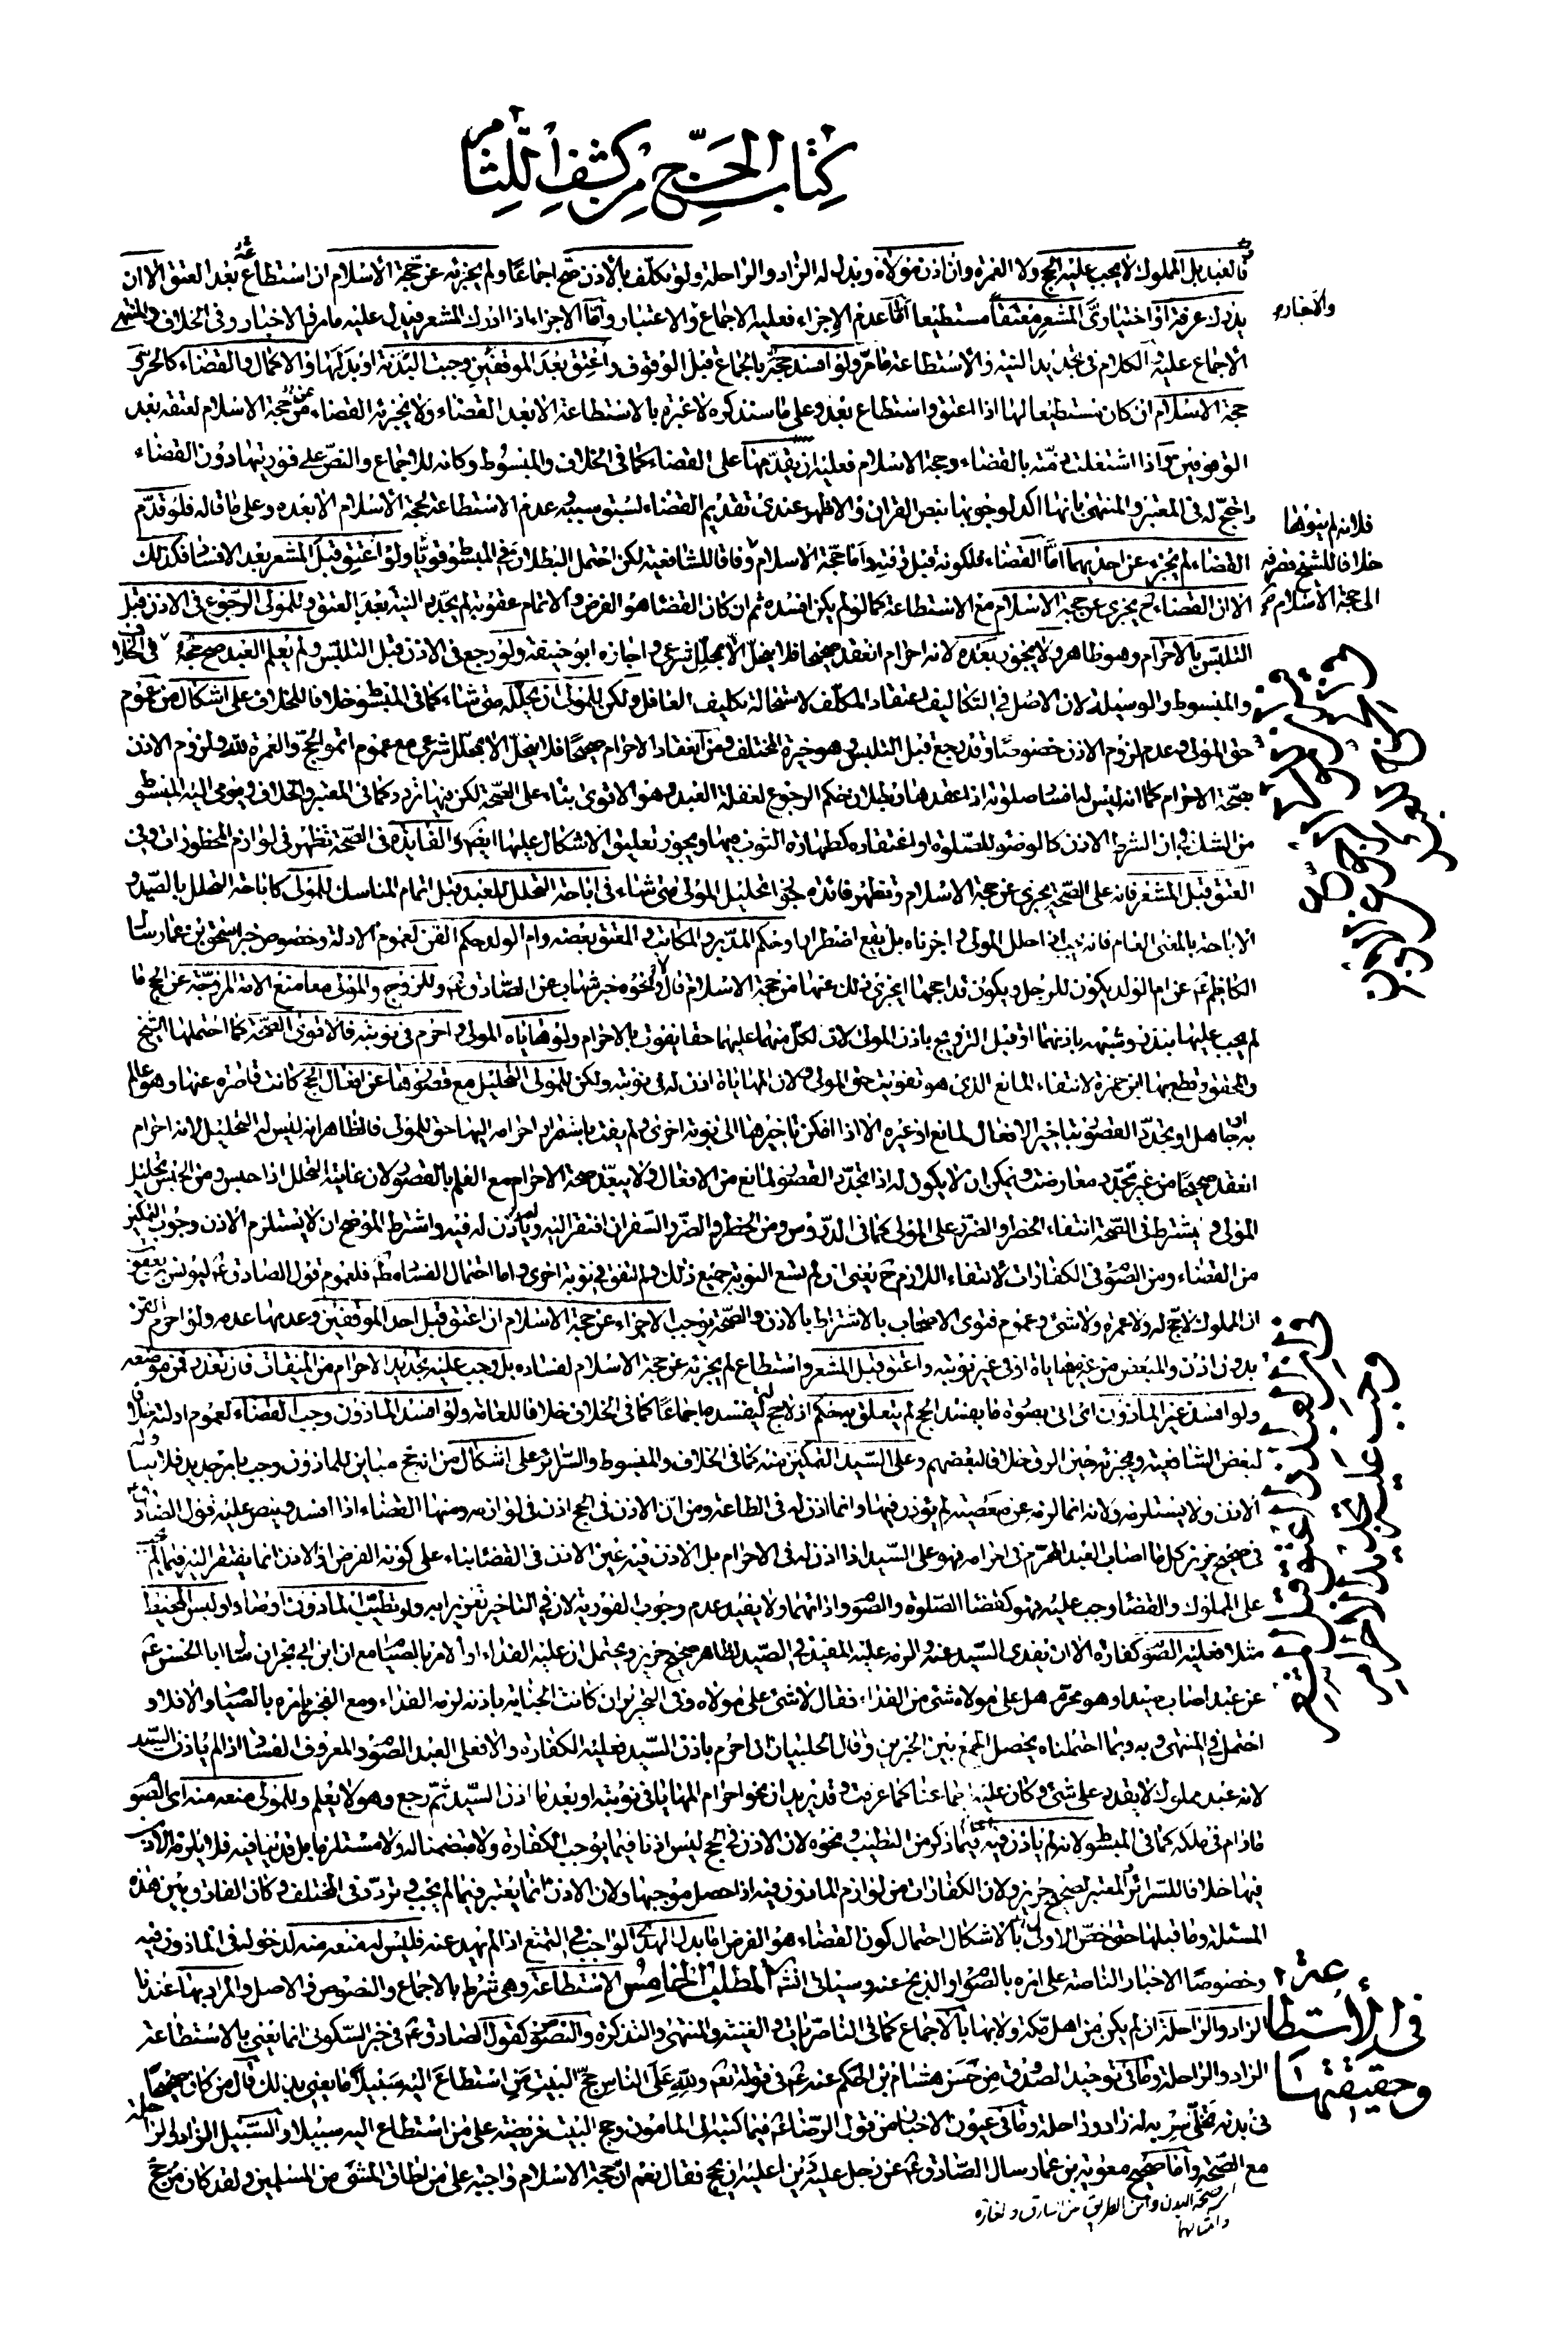 كتاب الحج من كشف اللثام
فالعبد بل المملوك لا يجب عليه الحج ولا العمرة وان اذن مولاه وبذل له الزاد والراحلة ولو تكلف بالاذن صح اجماعا ولم يجزئه عن حجة الاسلام ان استطاع بعد العتق الا ان
يدرك عرفة او اختياري المشعر معتقا مستطيعا اما عدم الاجزاء فعليه الاجماع والاعتبار واما الاجزاء اذا ادرك المشعر فيدل عليه ما مر في الاخبار وفي الخلاف والمنتهى
والاخبار
الاجماع عليه والكلام في تجديد النية والاستطاعة ما مر ولو افسد حجه بالجماع قبل الوقوف واعتق بعد الموقفين وجبت البدنة او بدلها والاكمال والقضاء كالحر و
حجة الاسلام ان كان مستطيعا لها اذا اعتق واستطاع بعد وعلى ما ستذكره لا عبرة بالاستطاعة الا بعد القضاء ولا يجزئه القضاء عن حجة الاسلام لعتقه بعد
الموقفين واذا اشتغلت ذمته بالقضاء وحجة الاسلام فعليه ان يقدمها على القضاء كما في الخلاف والمبسوط وكانه للاجماع والنص على فوريتها دون القضاء
واحتج له في المعتبر والمنتهى بانها اكد لوجوبها بنص القران والاظهر عندي تقديم القضاء لسبق سببه وعدم الاستطاعة لحجة الاسلام الا بعده وعلى ما قاله فلو قدم
القضاء لم يجزء عن احديهما اما القضاء فلكونه قبل وقته واما حجة الاسلام وفاقا للشافعية لكن احتمل البطلان في المبسوط قويا ولو اعتق قبل المشعر بعد الافساد فكذلك
فلانه لم ينوها
خلافا للشيخ فصرفه
الى حجة الاسلام
الا ان القضاء يجزي عن حجة الاسلام مع الاستطاعة كما لو لم يكن افسده ثم ان كان القضاء هو الفرض والاتمام عقوبة لم يجدد النية بعد العتق وللمولى الرجوع في الاذن قبل
التلبس بالاحرام وهو ظاهر ولا يجوز بعده لانه احرام انعقد صحيحا فلا ينحل الا بمحلل شرعي واجازه ابو حنيفة ولو رجع في الاذن قبل التلبس ولم يعلم العبد صح حجه وفي الخلاف
والمبسوط والوسيلة لان الاصل في التكاليف اعتقاد المكلف لاستحالة تكليف الغافل ولكن للمولى ان يحلله متى شاء كما في المبسوط خلافا للخلاف على اشكال من عموم
حق المولى وعدم لزوم الاذن خصوصا وقد رجع قبل التلبس وهو خيرة المختلف ومن انعقاد الاحرام صحيحا فلا ينحل الا بمحلل شرعي مع عموم اتموا الحج والعمرة لله ولزوم الاذن
بصحة الاحرام كما انه ليس له افساد صلوته اذا عقدها وبطلان حكم الرجوع لغفلة العبد وهو الاقوى بناء على الصحة لكن فيها تردد كما في المعتبر والخلاف ويومي اليه المبسوط
من الشك في ان الشرط الاذن كالوضوء للصلوة او اعتقاده كطهارة الثوب فيها ويجوز تعليق الاشكال عليها ايضا والفايدة في الصحة تظهر في لوازم المحظورات وفي
العتق قبل المشعر فانه على الصحة يجزي عن حجة الاسلام وتظهر فائدة جواز تحليل المولى متى شاء في اباحة التحلل للعبد قبل اتمام المناسك للمولى كاباحة التحلل بالصد و
الاباحة بالمعنى العام فانه يجب اذا احلل المولى واجزناه بل يقع اضطرارا وحكم المدبر والمكاتب والمعتق بعضه وام الولد حكم القن لعموم الادلة وخصوص خبر اسحق بن عمار سال
الكاظم ع عن ام الولد يكون للرجل ويكون قد احجها ايجزي ذلك عنها من حجة الاسلام قال لا ونحوه خبر شهاب عن الصادق ع وللزوج والمولى معا منع الامة المزوجة عن الحج ما
لم يجب عليها بنذر وشبهه باذنهما او قبل التزويج باذن المولى لان لكل منهما عليها حقا يفوت بالاحرام ولو هاياه المولى واحرم في نوبته فالاقوى الصحة كما احتملها الشيخ
والمحقق وقطع بها ابن حمزة لانتفاء المانع الذي هو تفويت حق المولى ولان المهاياة اذن له في نوبته ولكن للمولى التحليل مع قصورها عن افعال الحج كانت قاصرة عنها وهو عالم
به او جاهل او تجدد القصور بتاخير الافعال لمانع او غيره الا اذا امكن تاخيرها الى نوبة اخرى ولم يفت باستمرار احرامه اليها حق للمولى فالظاهر انه ليس له التحليل لانه احرام
انعقد صحيحا من غير تجدد معارضة ويمكن ان لا يكون له اذا تجدد القصور لمانع من الافعال ولا يبعد صحة الاحرام مع العلم بالقصور لان غايته التحلل اذا حبس ومن الحبس تحليل
المولى ويشترط في الصحة انتفاء الخطر والضرر على المولى كما في الدروس ومن الخطر والضرر السفر ان افتقر اليه ولم ياذن له فيه واشترط الموضح ان لا يستلزم الاذن وجوب التمكين
من القضاء ومن الصوم في الكفارات لانتفاء اللازم ح يعني ان لم تسع النوبة جميع ذلك ولم تتفق في نوبة اخرى واما احتمال الفساد فلعموم قول الصادق ع ليونس بن يعقوب
ان المملوك لا حج له ولا عمرة ولا شيء وعموم فتوى الاصحاب بالاشتراط بالاذن والصحة يوجب الاجزاء عن حجة الاسلام ان اعتق قبل احد الموقفين وعدمها عدمه ولو احرم القن
بدون اذن والمبعض من غير مهاياة او في غير نوبته واعتق قبل المشعر واستطاع لم يجزئه عن حجة الاسلام لفساده بل وجب عليه تجديد الاحرام من الميقات فان تعذر فمن موضعه
ولو افسد غير الماذون اي اتى بصورة ما يفسد الحج لم يتعلق به حكم اذ لا حج ليفسده اجماعا كما في الخلاف خلافا للعامة ولو افسد الماذون وجب القضاء لعموم ادلته خلافا
لبعض الشافعية ويجزئه حين الرق خلافا لبعضهم وعلى السيد التمكين منه كما في الخلاف والمبسوط والسرائر على اشكال من انه حج مباين للماذون وجب بامر جديد فلا يتناوله
الاذن ولا يستلزمه ولانه انما لزمه عن معصيته لم يؤذن فيها وانما اذن له في الطاعة ومن ان الاذن في الحج اذن في لوازمه ومنها القضاء اذا افسد وينص عليه قول الصادق ع
في صحيح حريز كل ما اصاب العبد المحرم في احرامه فهو على السيد اذا اذن له في الاحرام بل الاذن فيه عين الاذن في القضاء بناء على كونه الفرض اذ الاذن انما يفتقر اليه فيما لم يجب
على المملوك والقضاء وجب عليه فهو كقضاء الصلوة والصوم واذائهما ولا يفيد عدم وجوب الفورية لان في التاخير تغريرا به ولو تطيب الماذون او صاد او لبس المخيط
مثلا فعليه الصوم كفارة الا ان يفدى السيد عنه والزمه عليه المفيد في الصيد لظاهر صحيح حريز ويحتمل ان عليه الفداء او الامر بالصيام مع ان ابن ابي نجران سال ابا الحسن ع
عن عبد اصاب صيدا وهو محرم هل على مولاه شيء من الفداء فقال لا شيء على مولاه وفي التحرير ان كانت الجناية باذنه لزمه الفداء ومع العجز يامره بالصيام والا فلا و
احتمل في المنتهى وبه وبما احتملناه يحصل الجمع بين الخبرين وقال الحلبيان ان احرم باذن السيد فعليه الكفارة والا فعلى العبد الصوم والمعروف الفساد اذا لم ياذن السيد
لانه عبد مملوك لا يقدر على شيء وكان عليه اجماعنا كما عرفت وقد يريدان نحو احرام المهايا في نوبته او بعد ما اذن السيد ثم رجع وهو لا يعلم وللمولى منعه منه اي الصوم
مادام في ملكه كما في المبسوط لانه لم ياذن فيه فيما ذكر من التطيب ونحوه لان الاذن في الحج ليس اذنا فيما يوجب الكفارة ولا متضمنا له ولا مستلزما بل قد ينافيه فلا يلزمه الاذن
فيها خلافا للسرائر والمعتبر لصحيح حريز ولان الكفارات من لوازم الماذون فيه اذا حصل موجبها ولان الاذن انما يعتبر فيما لم يجب وتردد في المختلف وكان الفارق بين هذه
المسئلة وما قبلها حتى خص الاولى بالاشكال احتمال كون القضاء هو الفرض اما بدل الهدي الواجب في التمتع اذا لم يهد عنه فليس له منعه منه لدخوله في الماذون فيه
وخصوصا الاخبار الناصة على امره بالصوم او الذبح عنه وسياتي انشاء المطلب الخامس الاستطاعة وهي شرط بالاجماع والنصوص في الاصل والمراد بها عندنا
في الاستطاعة
وحقيقتها
الزاد والراحلة ان لم يكن من اهل مكة ولا بها بالاجماع كما في الناصريات والغنية والمنتهى والتذكرة والنصوص كقول الصادق ع في خبر السكوني انما يعني بالاستطاعة
الزاد والراحلة وما في توحيد الصدوق من حسن هشام بن الحكم عنه ع في قوله تعالى ولله على الناس حج البيت من استطاع اليه سبيلا ما يعني بذلك قال من كان صحيحا
في بدنه مخلى سربه له زاد وراحلة وما في عيون الاخبار من قول الرضا ع فيما كتبه الى المامون وحج البيت فريضة على من استطاع اليه سبيلا والسبيل الزاد والراحلة
مع الصحة واما صحيح معوية بن عمار سال الصادق ع عن رجل عليه دين اعليه ان يحج فقال نعم ان حجة الاسلام واجبة على من اطاق المشي من المسلمين ولقد كان من حج
اي صحة البدن وامن الطريق من سارق وغارة
وامثالهما